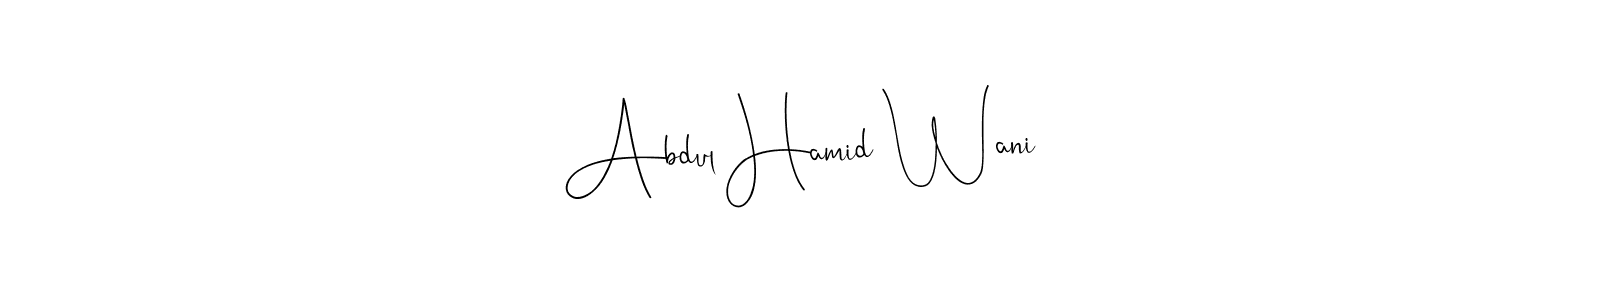 Abdul Hamid Wani